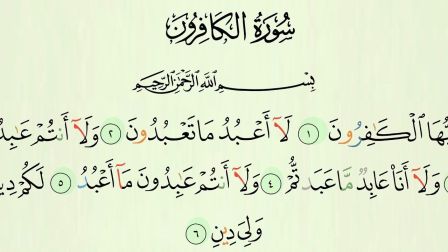 سُورَةُ الْكَافِرُونَ
بِسْمِ اللَّهِ الرَّحْمَٰنِ الرَّحِيمِ
يُّهَا الْكَٰفِرُونَ ١ لَآ أَعْبُدُ مَا تَعْبُدُونَ ٢ وَلَآ أَنتُمْ عَٰبِدُ
وَلَآ أَنَا۠ عَابِدٌ مَّا عَبَدتُّمْ ٤ وَلَآ أَنتُمْ عَٰبِدُونَ مَآ أَعْبُدُ ٥ لَكُمْ دِي
وَلِىَ دِينِ ٦